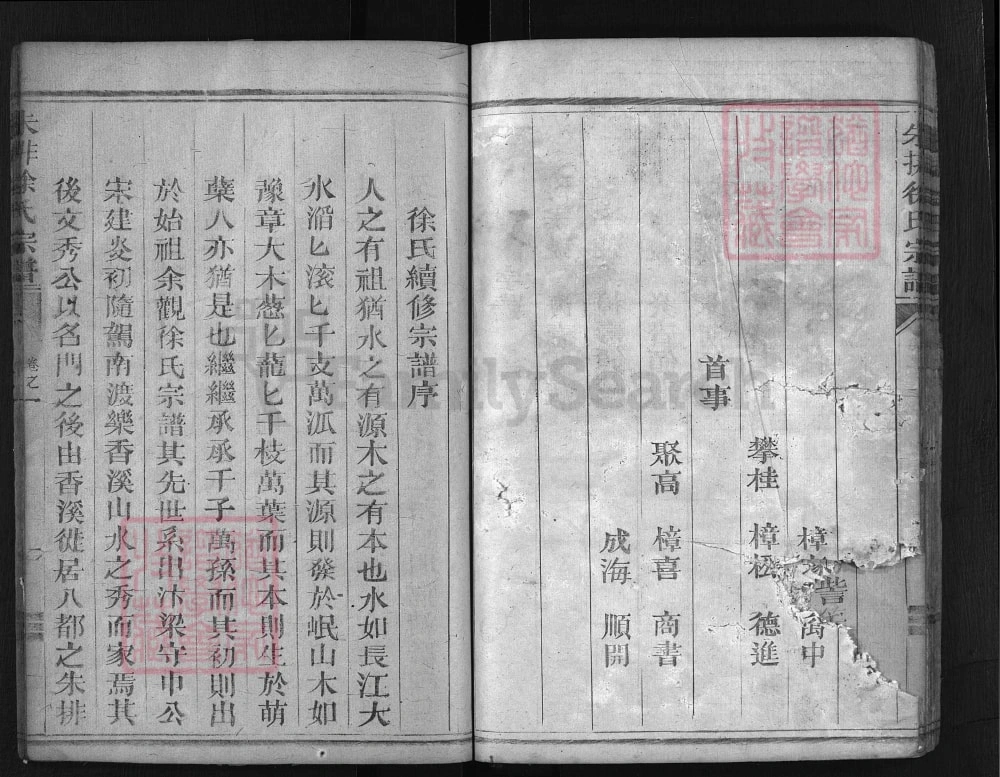 朱排徐氏宗譜
萬中
攀桂 樟松 德進
首事
聚高 樟喜 商書
成海 順開
徐氏續修宗譜序
人之有祖猶水之有源木之有本也水如長江大
水滔匕滾匕千支萬泒而其源則發於岷山木如
豫章大木葱匕蘢匕千枝萬葉而其本則生於萌
蘖人亦猶是也繼繼承承千子萬孫而其初則出
於始祖余觀徐氏宗譜其先世系出汴梁守中公
宋建炎初隨駕南渡樂香溪山水之秀而家焉其
後文秀公以名門之後由香溪徙居八都之朱排
朱排徐氏宗譜
卷之一
FamilySearch